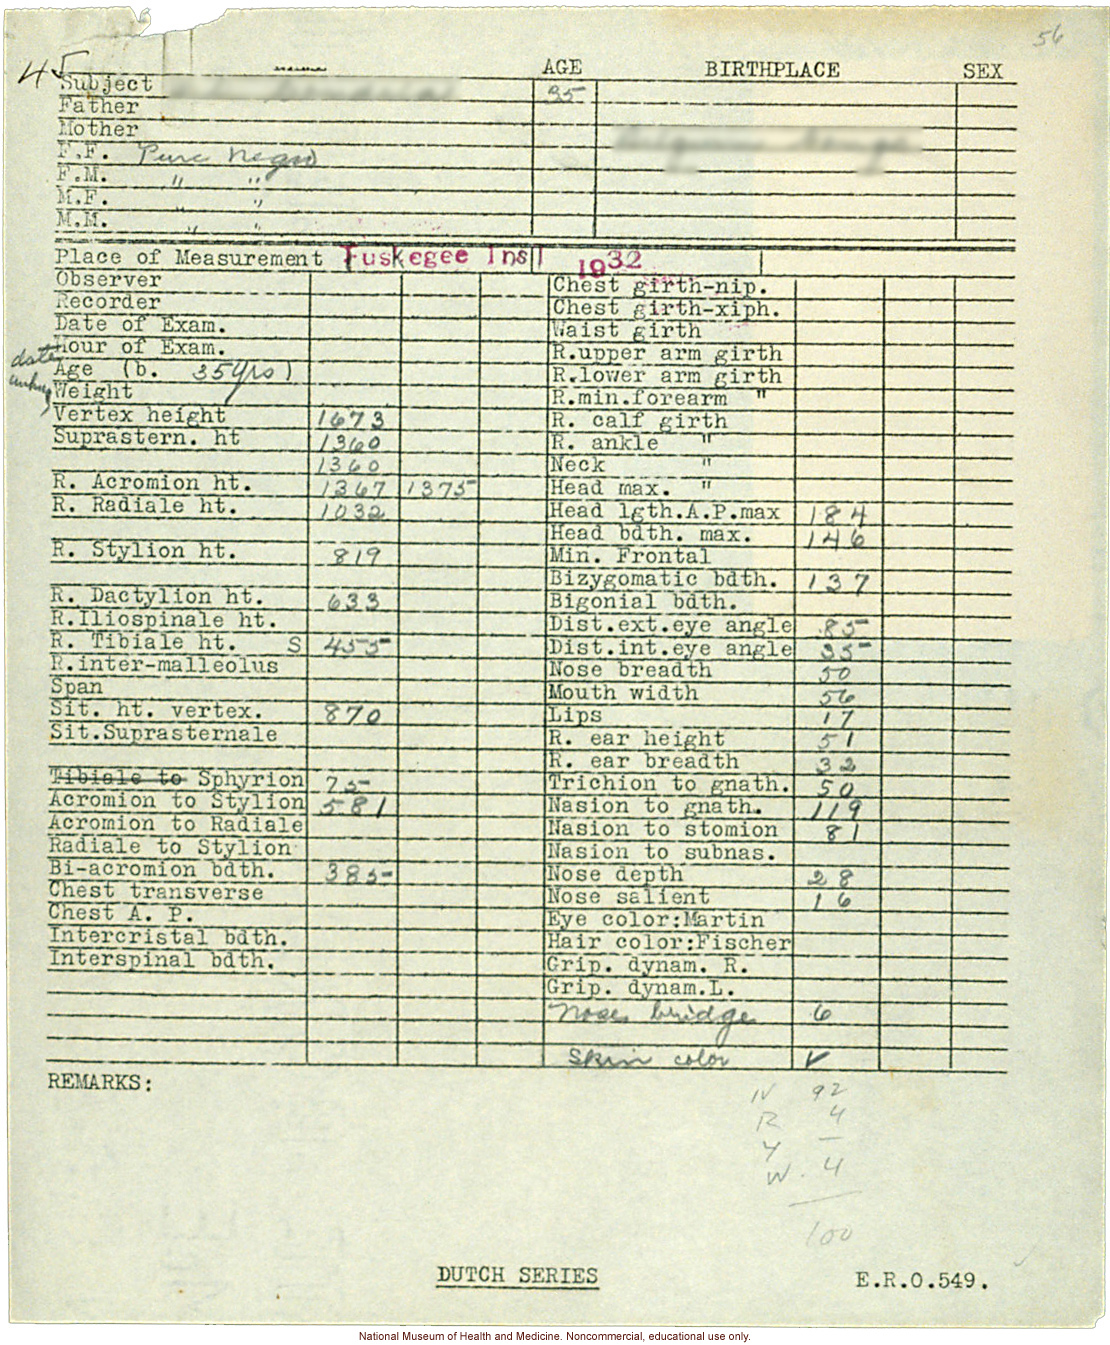 56
45
AGE BIRTHPLACE SEX
Subject 35
Father
Mother
F.F. Pure Negro
F.M. " "
M.F. " "
M.M. " "
Place of Measurement Tuskegee Inst 1932
Observer
Recorder
Date of Exam.
Hour of Exam.
date
Age (b. 35yrs)
Weight
Vertex height 1673
Suprastern. ht 1360
1360
R. Acromion ht. 1367 1375
R. Radiale ht. 1032
R. Stylion ht. 819
R. Dactylion ht. 633
R.Iliospinale ht.
R. Tibiale ht. S 455
R.inter-malleolus
Span
Sit. ht. vertex. 870
Sit.Suprasternale
Tibiale to Sphyrion 75
Acromion to Stylion 581
Acromion to Radiale
Radiale to Stylion
Bi-acromion bdth. 385
Chest transverse
Chest A. P.
Intercristal bdth.
Interspinal bdth.
Chest girth-nip.
Chest girth-xiph.
Waist girth
R.upper arm girth
R.lower arm girth
R.min.forearm "
R. calf girth
R. ankle "
Neck "
Head max. "
Head lgth.A.P.max 184
Head bdth. max. 146
Min. Frontal
Bizygomatic bdth. 137
Bigonial bdth.
Dist.ext.eye angle 85
Dist.int.eye angle 35
Nose breadth 50
Mouth width 56
Lips 17
R. ear height 51
R. ear breadth 32
Trichion to gnath. 50
Nasion to gnath. 119
Nasion to stomion 81
Nasion to subnas.
Nose depth 28
Nose salient 16
Eye color:Martin
Hair color:Fischer
Grip. dynam. R.
Grip. dynam.L.
Nose bridge 6
Skin color ✓
REMARKS:
N 92
R 4
Y —
W. 4
100
DUTCH SERIES
E.R.O.549.
National Museum of Health and Medicine. Noncommercial, educational use only.